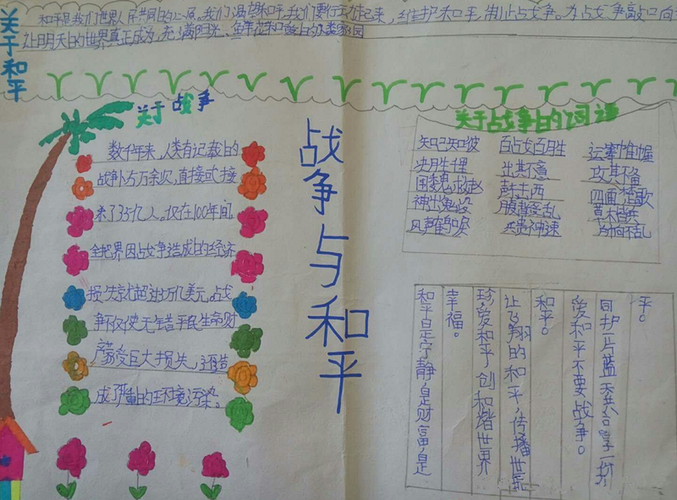 关于和平
和平是我们世界人民共同的心愿,我们渴望和平,我们要行动起来,维护和平,制止战争。为战争敲
让明天的世界真正成为充满阳光、鲜花和
关于战争
数千年来,人类有记载的
战争万余次,直接
来了35亿人。仅在100年间,
全世界因战争造成的经济
损失就超过万亿美元。战
争不仅使无辜平民生命财
产蒙受巨大损失,还造
成严重的环境污染。
战争与和平
关于战争的词语
知己知彼 百战百胜 运筹帷幄
决胜千里 出其不意 攻其不备
围魏救赵 声东击西 四面楚歌
神出鬼没 腹背受乱 草木皆兵
风声鹤唳 兵贵神速 所向不乱
平。
同护一片蓝天共享一
爱和平不要战争。
和平。
让飞翔的和平,传播世界
珍爱和平,创和谐世界
幸福。
和平是宁静,是财富,是